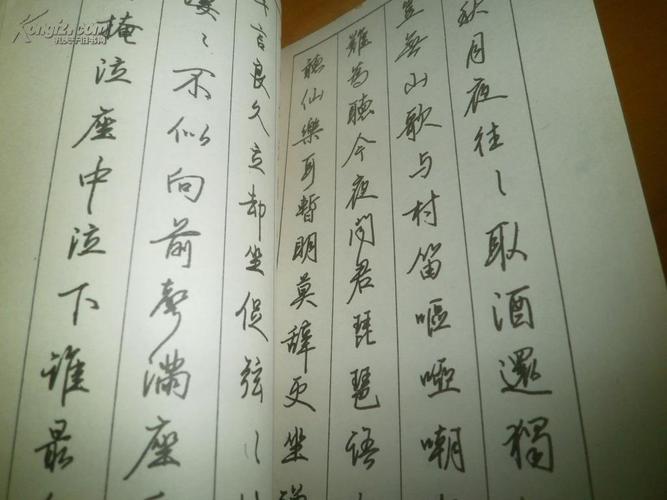 Kongfz.com
孔夫子旧书网
秋月夜往〻取酒還獨
豈無山歌与村笛嘔啞嘲
難為聽今夜闻君琵琶語
聽仙樂耳暫明莫辭更坐
言良久立却坐促弦〻
〻不似向前聲满座
掩泣座中泣下谁最